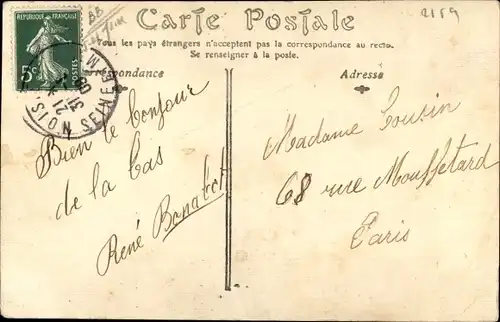 Carte Postale
Tous les pays étrangers n'acceptent pas la correspondance au recto.
Se renseigner à la poste.
Correspondance
Adresse
RÉPUBLIQUE FRANÇAISE
5c
BB
2159
SEINE
31
08
Bien le bonjour
de la bas
René
Madame Cousin
68 rue Mouffetard
Paris